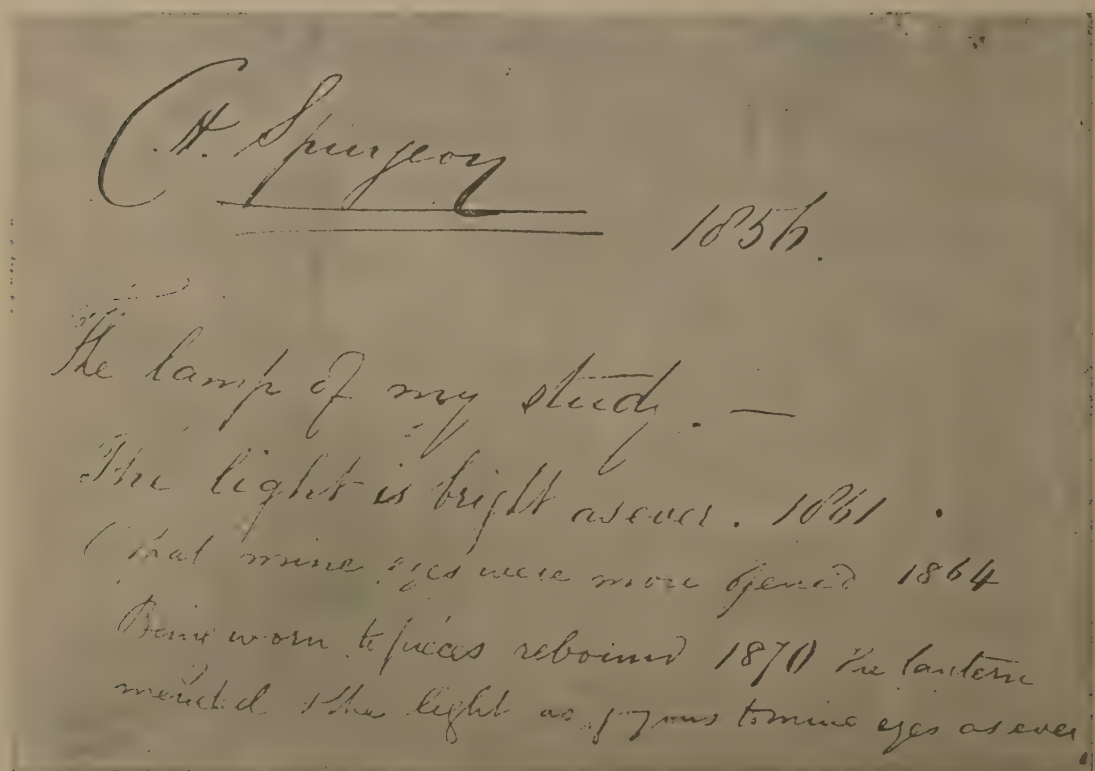 C. H. Spurgeon
1856.
The lamp of my study. —
The light is bright as ever. 1861.
O that mine eyes were more opened 1864
Being worn to pieces rebound 1870 the lantern
mended & the light as joyous to mine eyes as ever